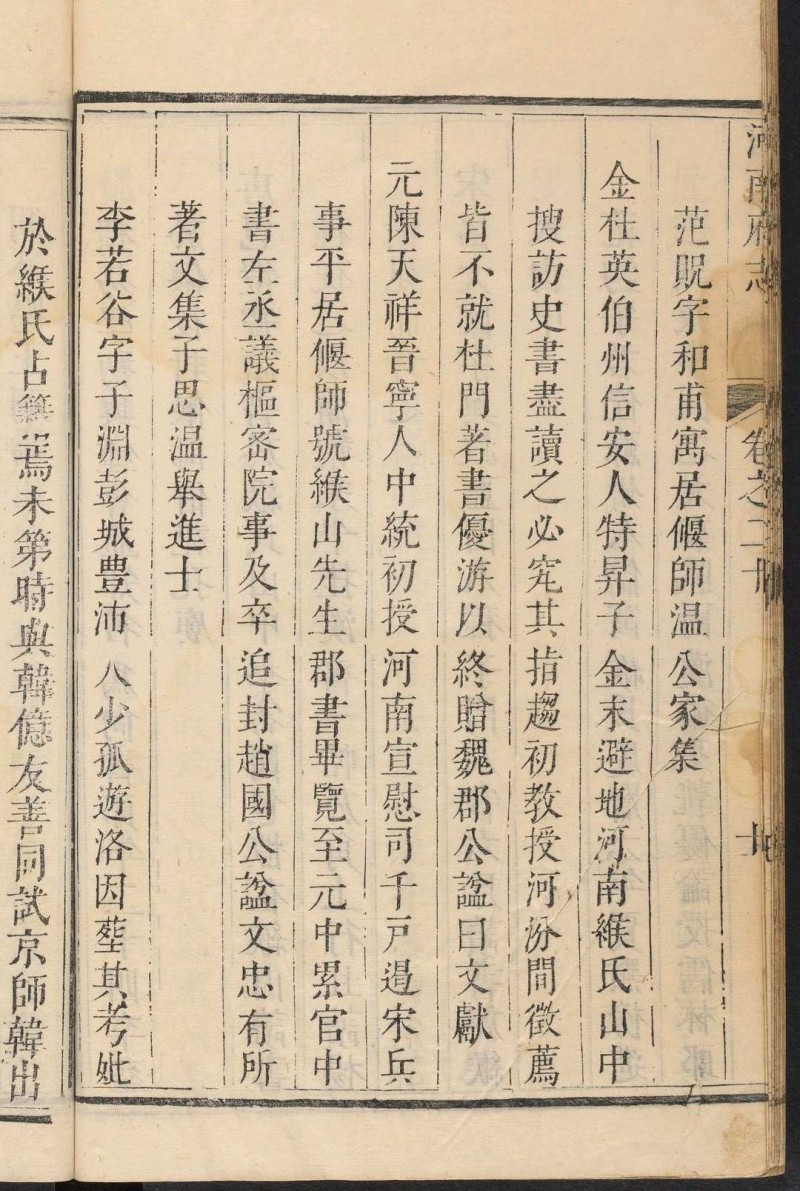 河南府志 卷之二十
范貺字和甫寓居偃師温公家集
金杜英伯州信安人特昇子金末避地河南緱氏山中
搜訪史書盡讀之必究其指趨初教授河汾間徵薦
皆不就杜門著書優游以終贈魏郡公諡曰文獻
元陳天祥晉寧人中統初授河南宣慰司千戸遏宋兵
事平居偃師號緱山先生郡書畢覽至元中累官中
書左丞議樞宻院事及卒追封趙國公諡文忠有所
著文集子思温舉進士
李若谷字子淵彭城豊沛人少孤遊洛因塟其考妣
於緱氏占籍焉未第時與韓億友善同試京師韓出